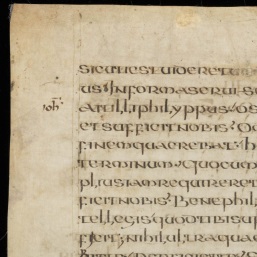 sicut est uideretu
us in forma serui. s
ioh
at illi philyppus. os
et sufficit nobis.
finem quaerebat.
terminum quocum
plius iam requireret
ficit nobis. bene phil
tellegis quod tibi suf
ficit nihil ultra quae